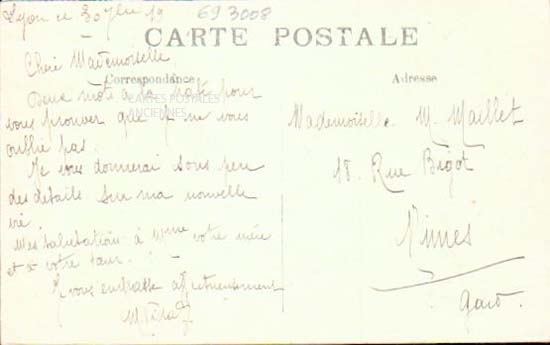 Lyon ce 30 19
693008
CARTE POSTALE
Chère Mademoiselle
Correspondance
Adresse
Deux mots à la hâte pour
CARTES POSTALES
ANCIENNES
vous prouver que je ne vous
oublie pas.
Je vous donnerai sous peu
des details sur ma nouvelle
vie.
Mes salutations à Mme votre mère
et à votre sœur.
Je vous embrasse affectueusement
Mademoiselle M. Maillet
18. Rue Bigot
Nimes
Gard.